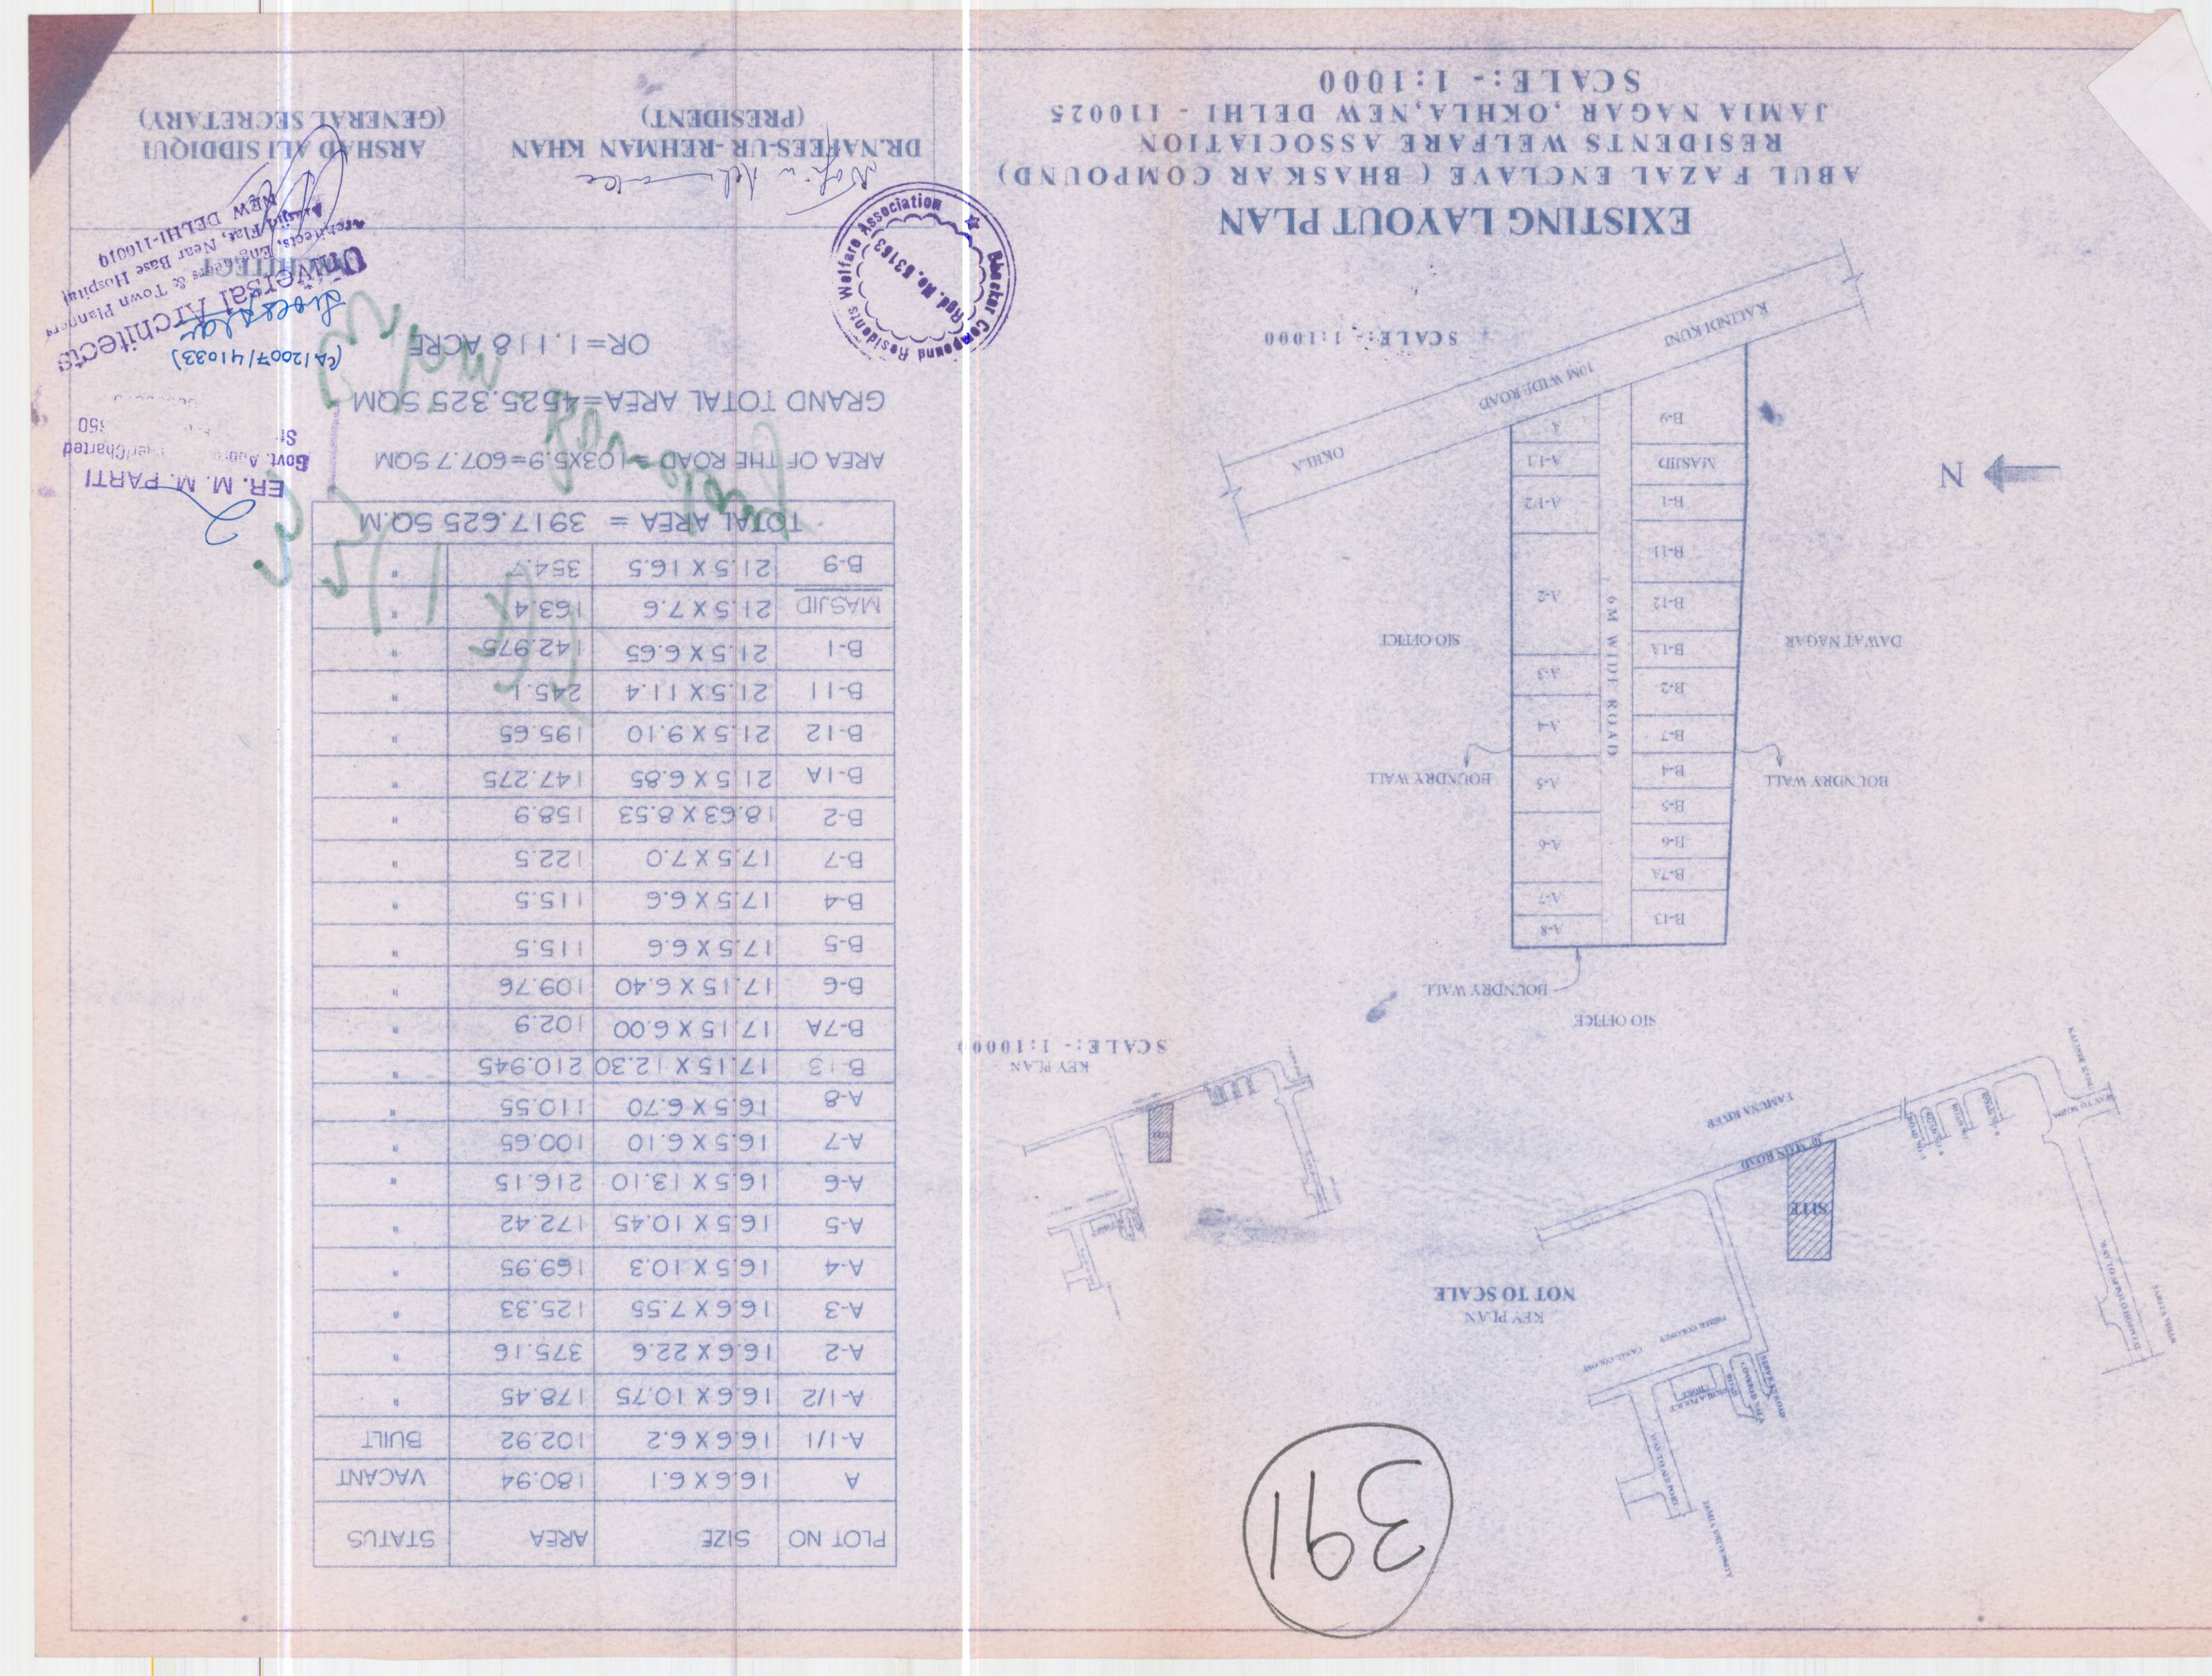 391
PLOT NO SIZE AREA STATUS
A 16.6 X 6.1 180.94 VACANT
A-1/1 16.6 X 6.2 102.92 BUILT
A-1/2 16.6 X 10.75 178.45 "
A-2 16.6 X 22.6 375.16 "
A-3 16.6 X 7.55 125.33 "
A-4 16.5 X 10.3 169.95 "
A-5 16.5 X 10.45 172.42 "
A-6 16.5 X 13.10 216.15 "
A-7 16.5 X 6.10 100.65 "
A-8 16.5 X 6.70 110.55 "
B-13 17.15 X 12.30 210.945 "
B-7A 17.15 X 6.00 102.9 "
B-6 17.15 X 6.40 109.76 "
B-5 17.5 X 6.6 115.5 "
B-4 17.5 X 6.6 115.5 "
B-7 17.5 X 7.0 122.5 "
B-2 18.63 X 8.53 158.9 "
B-1A 21.5 X 6.85 147.275 "
B-12 21.5 X 9.10 195.65 "
B-11 21.5 X 11.4 245.1 "
B-1 21.5 X 6.65 142.975 "
MASJID 21.5 X 7.6 163.4 "
B-9 21.5 X 16.5 354.7 "
TOTAL AREA = 3917.625 SQ.M
AREA OF THE ROAD =103X5.9=607.7 SQM
GRAND TOTAL AREA=4525.325 SQM
OR=1.118 ACRE
ER. M. M. PARTI
(CA/2007/41033)
Universal Architects
Architects, Engineers & Town Planners
Masjid Flat, Near Base Hospital
NEW DELHI-110010
ARCHITECT
DR.NAFEES-UR-REHMAN KHAN
(PRESIDENT)
ARSHAD ALI SIDDIQUI
(GENERAL SECRETARY)
Bhaskar Compound Residents Welfare Association
Regd. No. 63163
KEY PLAN
NOT TO SCALE
SITE
30' MAIN ROAD
YAMUNA RIVER
CANAL COLONY
KEY PLAN
SCALE:- 1:10000
SITE
SIO OFFICE
BOUNDRY WALL
B-13
B-7A
B-6
B-5
B-4
B-7
B-2
B-1A
B-12
B-11
B-1
MASJID
B-9
6M WIDE ROAD
A-8
A-7
A-6
A-5
A-4
A-3
A-2
A-1/2
A-1/1
A
BOUNDRY WALL
BOUNDRY WALL
DAWAT NAGAR
SIO OFFICE
N
KALINDI KUND
10M WIDE ROAD
OKHLA
SCALE:- 1:1000
EXISTING LAYOUT PLAN
ABUL FAZAL ENCLAVE ( BHASKAR COMPOUND)
RESIDENTS WELFARE ASSOCIATION
JAMIA NAGAR ,OKHLA,NEW DELHI - 110025
SCALE:- 1:1000